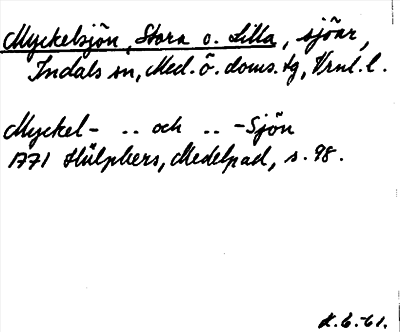 Myckelsjön, Stora o. Lilla, sjöar,
Indals sn, Med. ö. doms. tg, Vrnl. l.
Myckel- .. och .. -Sjön
1771 Hülphers, Medelpad, s. 98.
K.G.-61.